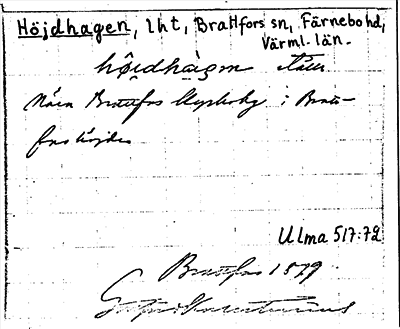 Höjdhagen, lht, Brattfors sn, Färnebo hd,
Värml. län.
höjdhàgen
Nära Brattfors kyrkoby i Bratt-
forshöjden
Ulma 517:72
Brattfors 1879